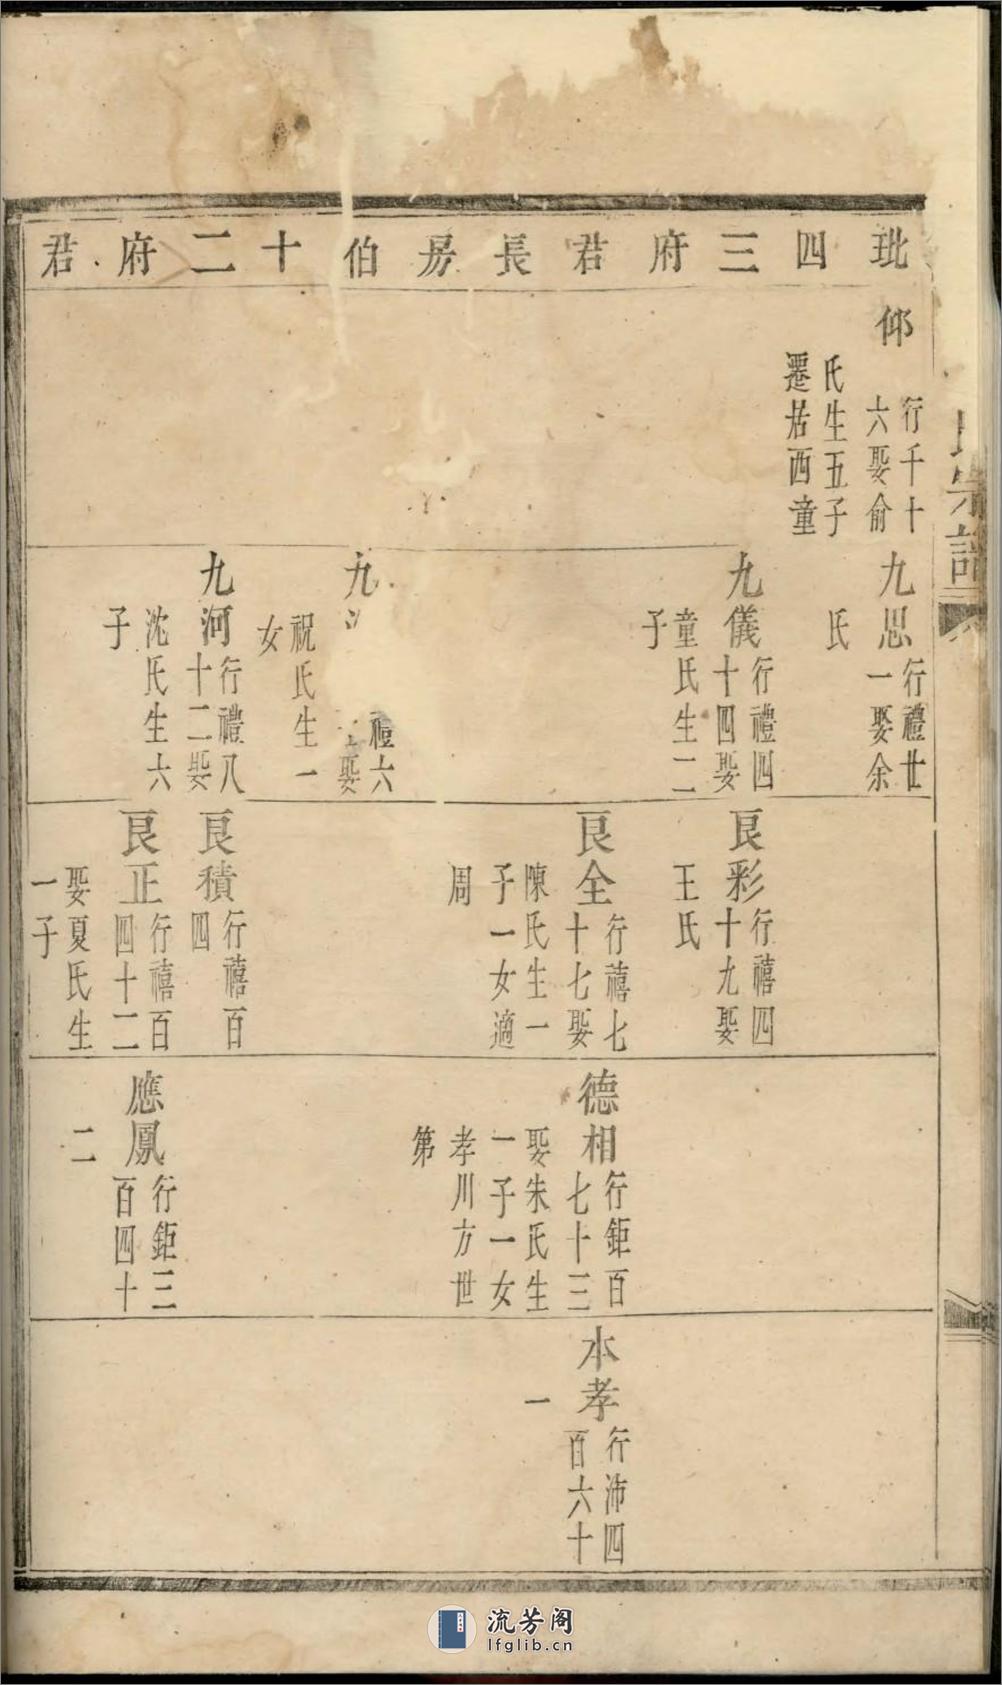 玭四三府君長房伯十二府君
仰
行千十
六娶俞
氏生五子
遷居西童
九思
行禮廿
一娶余
氏
九儀
行禮四
十四娶
童氏生二
子
九
禮六
娶
祝氏生一
女
九河
行禮八
十二娶
沈氏生六
子
良彩
行禧四
十九娶
王氏
良全
行禧七
十七娶
陳氏生一
子一女適
周
良積
行禧百
四
良正
行禧百
四十二
娶夏氏生
一子
德相
行鉅百
七十三
娶朱氏生
一子一女
孝川方世
第
應鳳
行鉅三
百四十
二
本孝
行沛四
百六十
一
宗譜
流芳阁
lfglib.cn